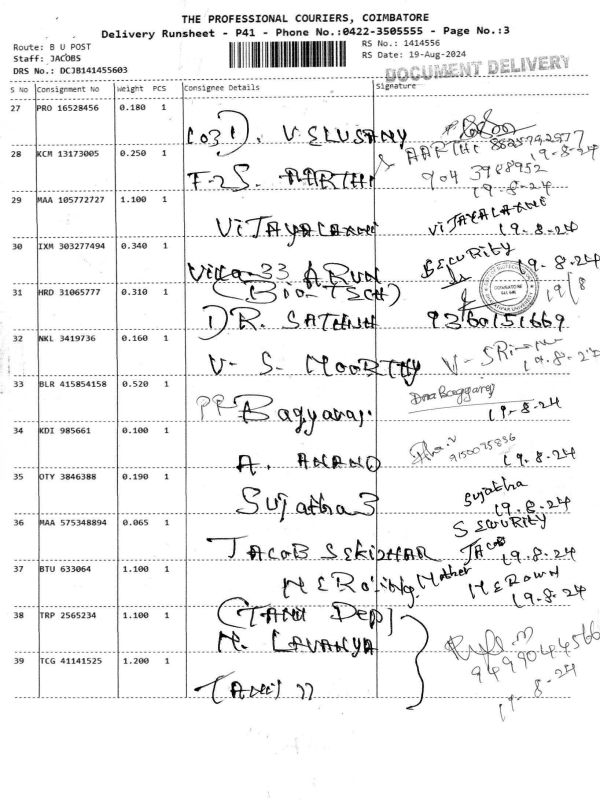 THE PROFESSIONAL COURIERS, COIMBATORE
Delivery Runsheet - P41 - Phone No.:0422-3505555 - Page No.:3
Route: B U POST
RS No.: 1414556
Staff: JACOBS
RS Date: 19-Aug-2024
DRS No.: DCJB141455603
DOCUMENT DELIVERY
S No Consignment No Weight PCS Consignee Details Signature
27 PRO 16528456 0.180 1
28 KCM 13173005 0.250 1
F-2 S. AARTHI
AARTHI
19-8-24
29 MAA 105772727 1.100 1
19.8.24
30 IXM 303277494 0.340 1
ARUN
SECURITY
19-8-24
31 HRD 31065777 0.310 1
DR. 9360151669
32 NKL 3419736 0.160 1
V- S. MOORTHY
33 BLR 415854158 0.520 1
PP Bagyaraj.
19-8-24
34 KDI 985661 0.100 1
A. ANAND
9150075836
19.8.24
35 OTY 3846388 0.190 1
Sujatha S
Sujatha
19.8.24
36 MAA 575348894 0.065 1
JACOB
SECURITY
JACOB
19.8.24
37 BTU 633064 1.100 1
Mother
19.8.24
38 TRP 2565234 1.100 1
(TAMIL Dep)
M. LAVANYA
39 TCG 41141525 1.200 1
TAMIL 11
9499044566
19-8-24